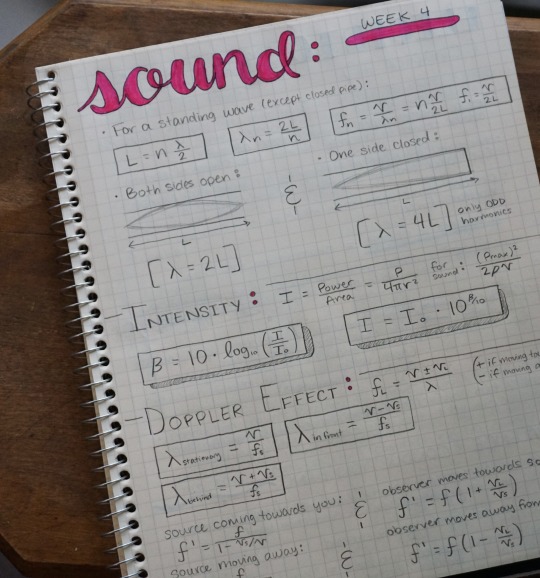 WEEK 4
sound:
· For a standing wave (except closed pipe):
L = n λ/2   λn = 2L/n   fn = v/λn = n v/2L   f1 = v/2L
· Both sides open: & · One side closed:
L   L
[λ = 2L]   [λ = 4L] only ODD harmonics
— INTENSITY: I = Power/Area = P/4πr² for sound: (Pmax)²/2ρv
β = 10 · log₁₀ (I/I₀)   I = I₀ · 10^β/10
— DOPPLER EFFECT: fL = v ± vL/λ (+ if moving
− if moving
λstationary = v/fs   λin front = v − vs/fs
λbehind = v + vs/fs
source coming towards you: & observer moves towards
f' = f/1 − vs/v   f' = f(1 + vL/vs)
source moving away: & observer moves away from
f' = f(1 − vL/vs)